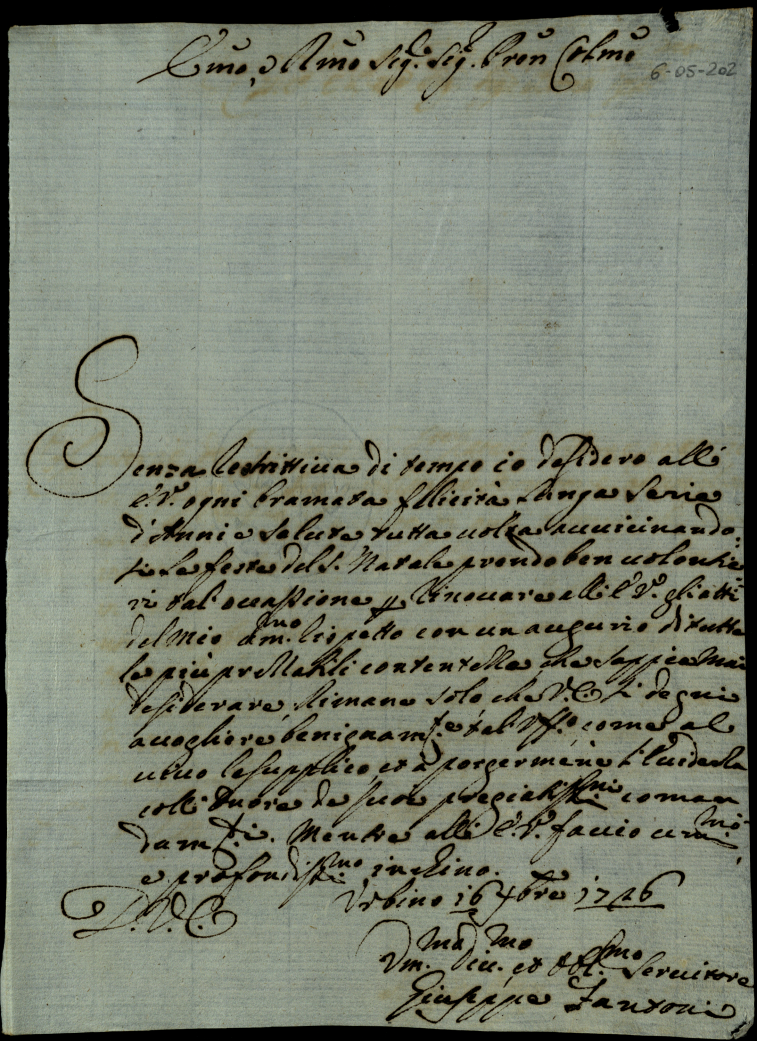 Emo, e Rmo Sig.r Sig.r Pron Colmo
6-05-202
Senza restrittiva di tempo io desidero all'
E.V. ogni bramata felicità lunga serie
d'Anni e salute tutta volta avvicinando-
si le feste del S. Natale prendo ben volontie
ri tal'occassione p rinovare all'E.V. gli atti
del mio umo. rispetto con un augurio di tutte
le più pr contentezze, che seppia mai
desiderare, Rimane solo, che V.E. si degni
accogliere benignamte tal Uff.o, come al
vivo la supplico, et a porgermene
coll'onore de suoi pregiatissmi coman
damti. Mentre all'E.V. faccio um.mo
e profondissmo inchino.
Urbino 16 Xbre 1746
D.V.E.
Um.mo Dev.mo et Obl.mo Servitore
Giuseppe Zantoni